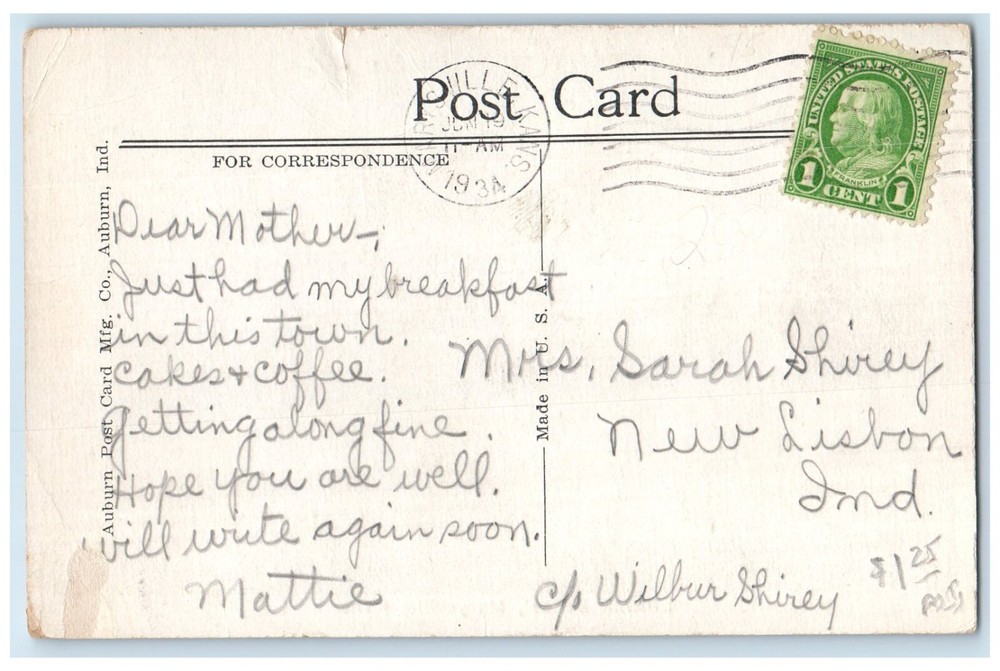 Post Card
FOR CORRESPONDENCE
MARYSVILLE, KANS
JUN 19
11-AM
1934
UNITED STATES POSTAGE
FRANKLIN
1 CENT 1
Auburn Post Card Mfg. Co., Auburn, Ind.
Made in U. S. A.
Dear Mother-,
Just had my breakfast
in this town.
cakes + coffee.
Getting along fine.
Hope you are well.
will write again soon.
Mattie
Mrs. Sarah Shirey
New Lisbon
Ind.
c/o Wilbur Shirey
$1 25